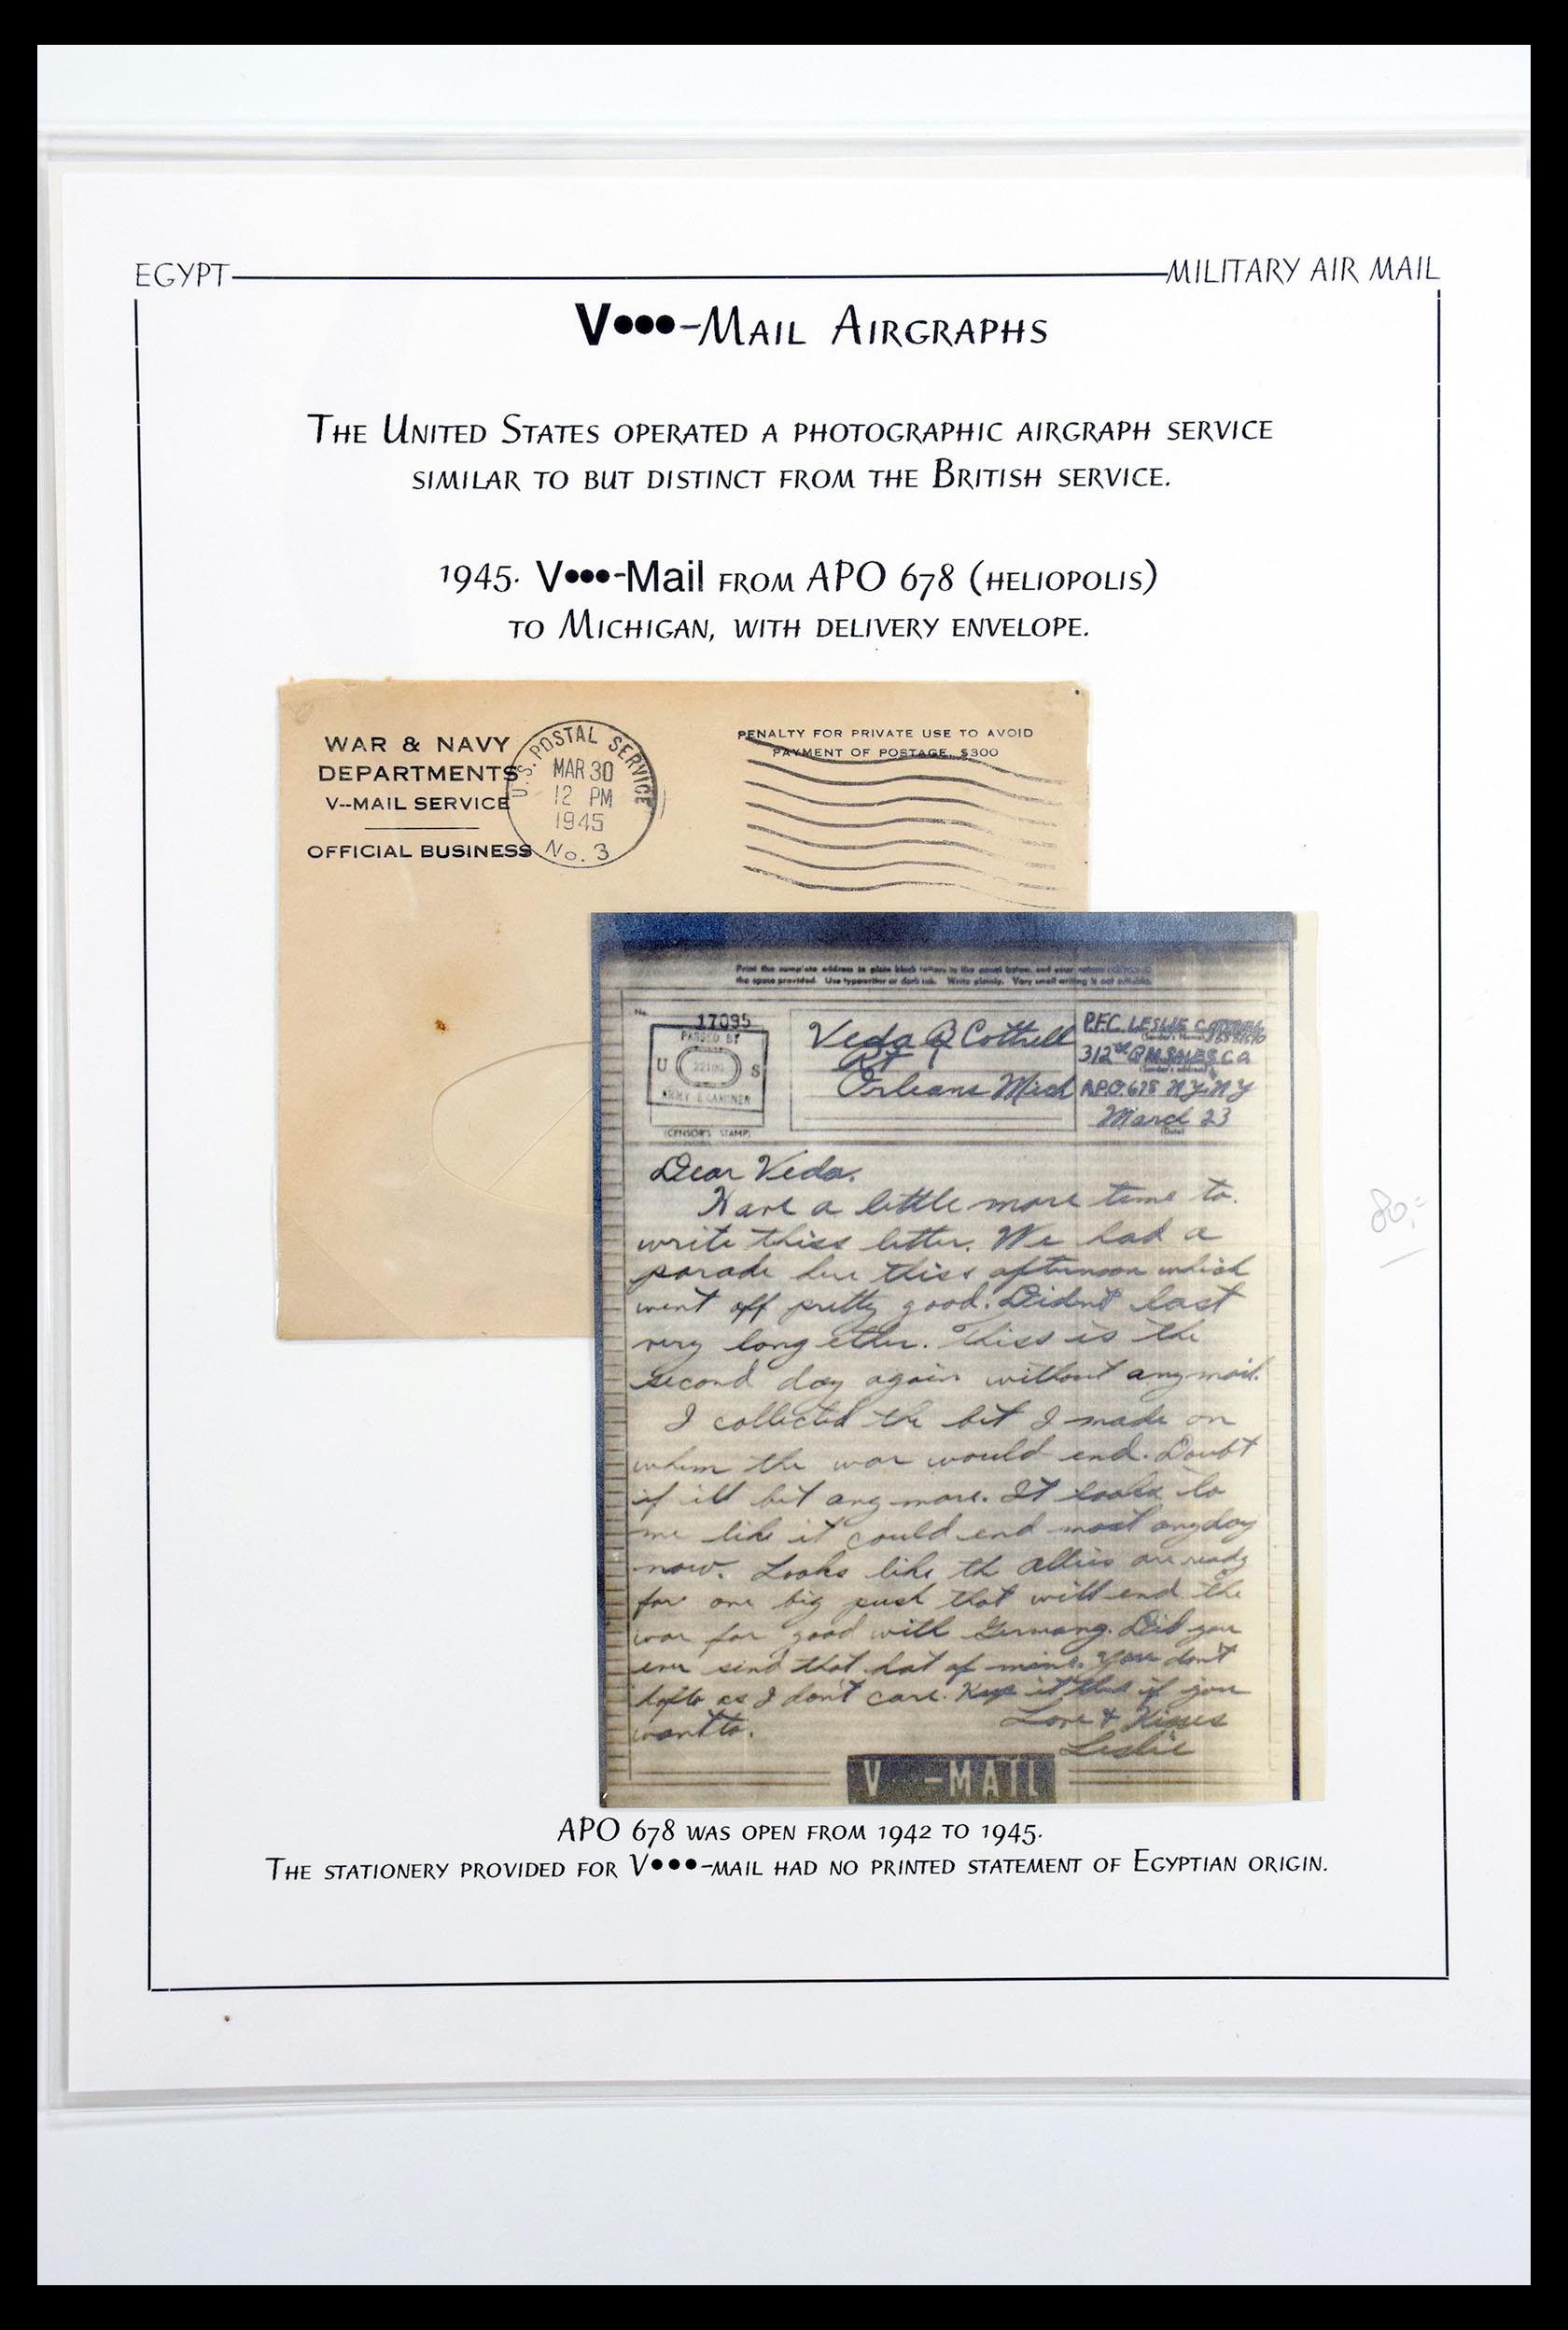 EGYPT MILITARY AIR MAIL
V•••-MAIL AIRGRAPHS
THE UNITED STATES OPERATED A PHOTOGRAPHIC AIRGRAPH SERVICE
SIMILAR TO BUT DISTINCT FROM THE BRITISH SERVICE.
1945. V•••-Mail FROM APO 678 (HELIOPOLIS)
TO MICHIGAN, WITH DELIVERY ENVELOPE.
WAR & NAVY
DEPARTMENTS
V--MAIL SERVICE
OFFICIAL BUSINESS
U.S. POSTAL SERVICE
MAR 30
12 PM
1945
No. 3
PENALTY FOR PRIVATE USE TO AVOID
PAYMENT OF POSTAGE, $300
Print the complete address in plain block letters in the panel below, and your return address in
the space provided. Use typewriter or dark ink. Write plainly. Very small writing is not suitable.
No.
17095
PASSED BY
U S
ARMY EXAMINER
(CENSOR'S STAMP)
Veda B Cottrell
Rt 1
Orleans Mich
P.F.C. LESLIE
312th QM SALES Co
APO. 678 N.Y. N.Y
March 23
(Date)
Dear Veda.
Have a little more time to
write thiss letter. We had a
parade here thiss afternoon which
went off pretty good. Didn't last
very long ether. Thiss is the
second day again without any mail.
I collected the bet I made on
when the war would end. Doubt
if ill bet any more. It looks to
me like it could end most anyday
now. Looks like th allies are ready
for one big push that will end the
war for good with Germany. Did you
ever send that hat of mine. You don't
hafto as I don't care. Keep it if you
want to. Love & Kisses
Leslie
V -MAIL
80,-
APO 678 WAS OPEN FROM 1942 TO 1945.
THE STATIONERY PROVIDED FOR V•••-MAIL HAD NO PRINTED STATEMENT OF EGYPTIAN ORIGIN.